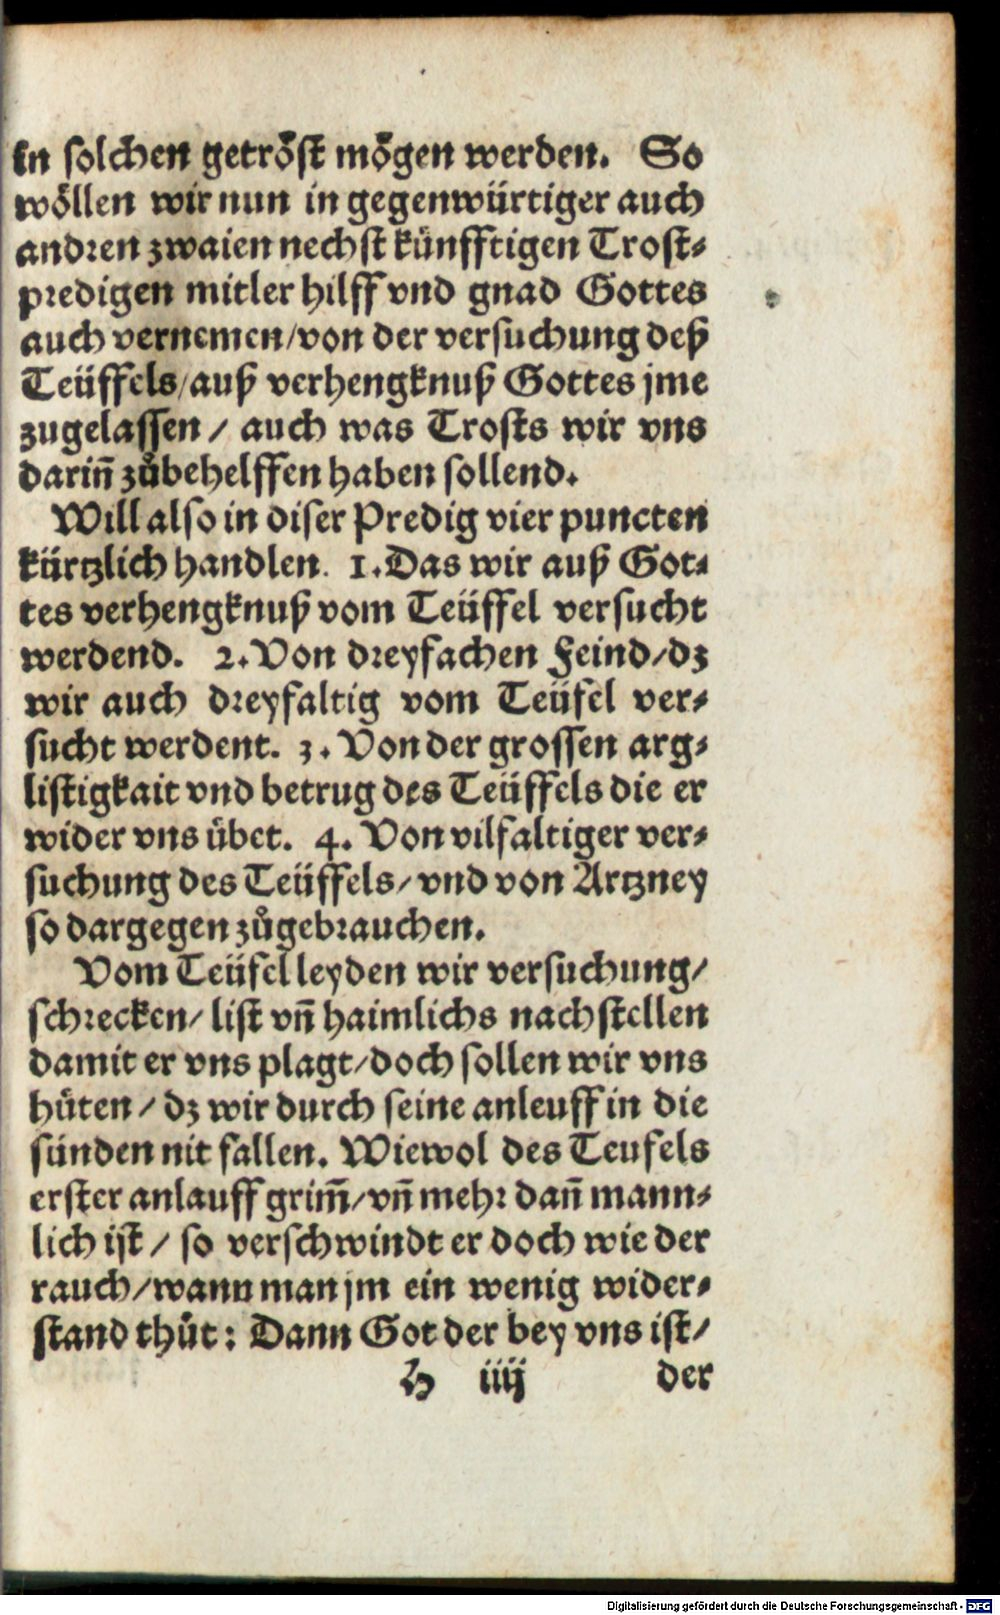 in solchen getröst mögen werden. So
wöllen wir nun in gegenwürtiger auch
andren zwaien nechst künfftigen Trost-
predigen mitler hilff vnd gnad Gottes
auch vernemen/von der versuchung deß
Teüffels/auß verhengknuß Gottes jme
zugelassen / auch was Trosts wir vns
dariñ zůbehelffen haben sollend.
Will also in diser Predig vier puncten
kürtzlich handlen. 1. Das wir auß Got-
tes verhengknuß vom Teüffel versucht
werdend. 2. Von dreyfachen Feind/dz
wir auch dreyfaltig vom Teüfel ver-
sucht werdent. 3. Von der grossen arg-
listigkait vnd betrug des Teüffels die er
wider vns übet. 4. Von vilfaltiger ver-
suchung des Teüffels/vnd von Artzney
so dargegen zůgebrauchen.
Vom Teüfel leyden wir versuchung/
schrecken/ list vñ haimlichs nachstellen
damit er vns plagt/doch sollen wir vns
hüten / dz wir durch seine anleuff in die
sünden nit fallen. Wiewol des Teufels
erster anlauff grim̃/vñ mehr dañ mann-
lich ist / so verschwindt er doch wie der
rauch/wann man jm ein wenig wider-
stand thůt: Dann Got der bey vns ist/
H iiij der
Digitalisierung gefördert durch die Deutsche Forschungsgemeinschaft - DFG